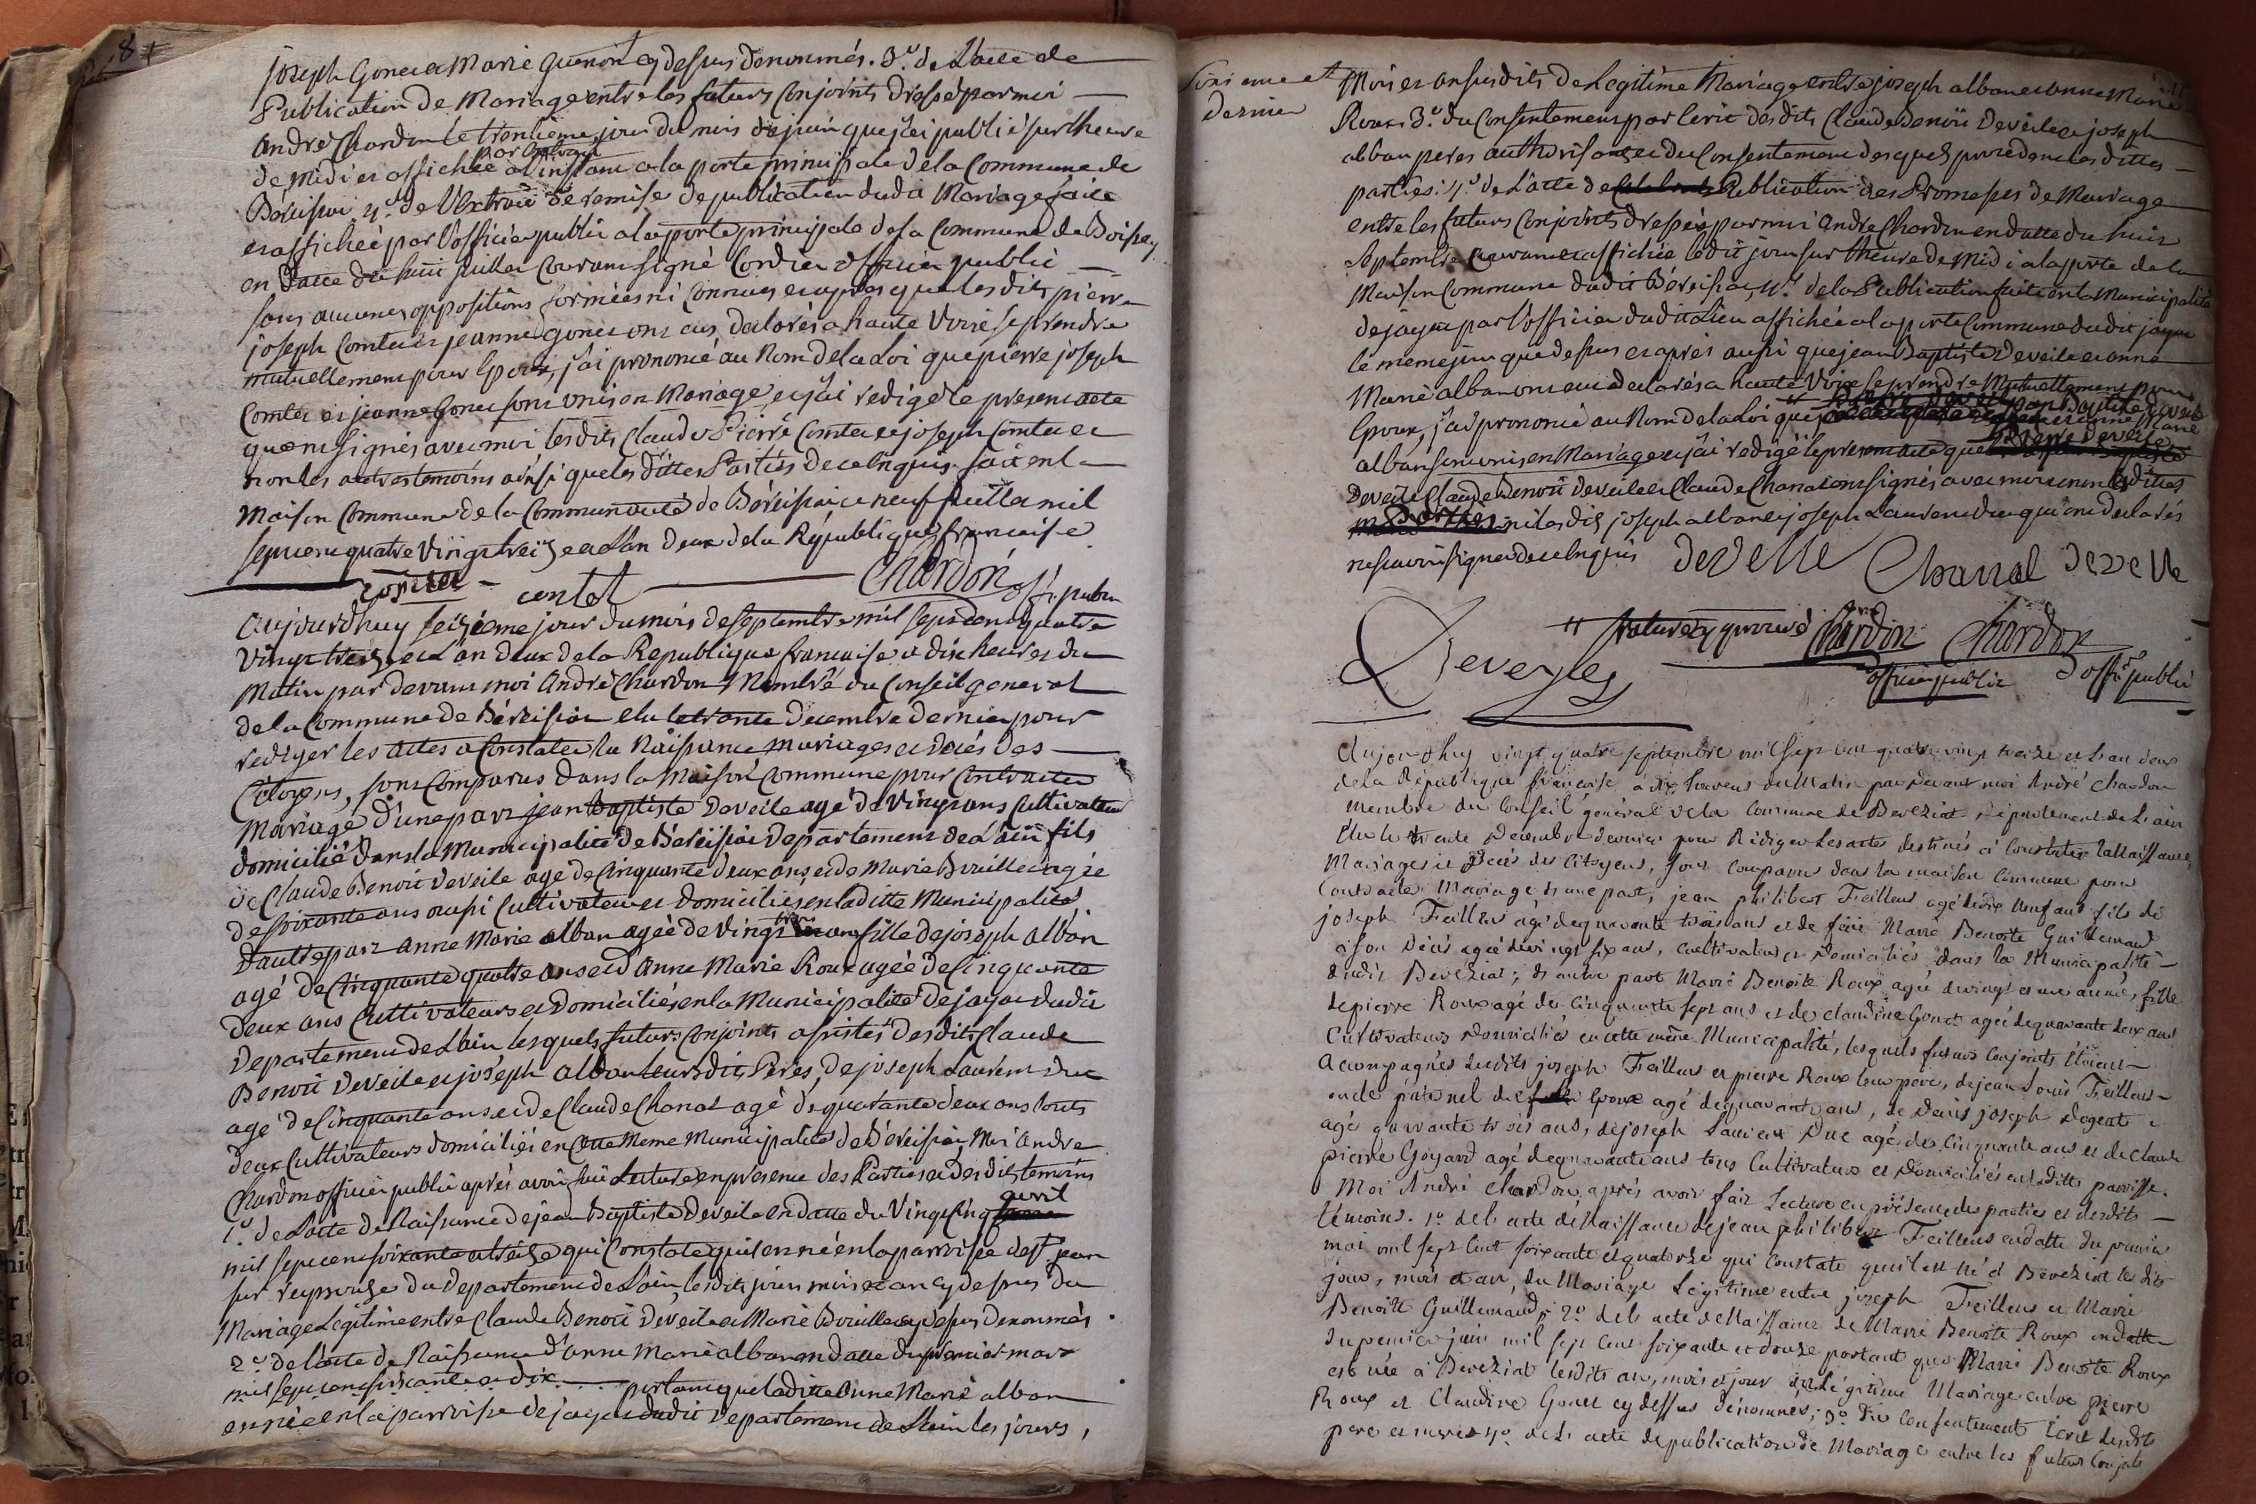 8
joseph Gonet et Marie Guenon cy dessus denommés. 3.º de L'acte de
Publication de Mariage entre les futurs Conjoints dressé par moi
andré Chardon le trentieme jour du mois de juin que j'ai publié sur l'heure
de Midi et affichée par extrait a l'instant a la porte principale de la Commune de
Béreisiat 4.º de l'Extrait de remise de publication dudit Mariage faite
et affichée par l'officier public a la porte principale de la Commune de Boissey
en datte du huit juillet Courant signé Cordier officier public
sans aucunes oppositions formées ni connues et apres que les dits pierre
joseph Comtet et jeanne gonet ont eus declarés a haute Voix se prendre
mutuellement pour Epoux, j'ai prononcé au Nom de la Loi que pierre joseph
Comtet et jeanne Gonet sont unis en Mariage et j'ai redigé le present acte
qu'ont signés avec moi lesdits Claude Pierre Comtet et joseph Comtet et
non les autres temoins ainsi que les dittes Parties de ce Enquis fait en la
Maison Commune de la Communauté de Béreisiat ce neuf juillet mil
sept cent quatre Vingt treize et L'an deux de la République française
contet Chardon off. public
aujourd'huy seizieme jour du mois de septembre mil sept cent quatre
Vingt treize et L'an deux de la Republique francaise a dix heures du
Matin par devant moi André Chardon Membre du Conseil general
de la Commune de Béreisiat elu le trente Decembre dernier pour
rediger les actes a Constater la Naissance mariages et décés des
Citoyens, sont Comparus dans la Maison Commune pour Contracter
Mariage d'une part jean Baptiste Deveile agé de Vingt ans Cultivateur
domicilié dans la Municipalité de Béreisiat Departement de L'ain fils
de Claude Benoit Deveile agé de Cinquante deux ans et de Marie Bruillet agée
de soixante ans aussi Cultivateur et domiciliés en la ditte Municipalité
D'autre part anne Marie alban agée de Vingt trois ans fille de joseph alban
agé de Cinquante quatre ans et d'anne Marie Roux agée de Cinquante
deux ans Cultivateurs et Domiciliés en la Municipalité de jayat dudit
Departement de L'ain lesquels futurs Conjoints assistés desdits Claude
Benoit Deveile et joseph alban leursdits Peres, de joseph Laurent Duc
agé de Cinquante ans et de Claude Chanal agé de quarante deux ans touts
deux Cultivateurs domiciliés en Cette Meme Municipalité de Béreisiat Moi andre
Chardon officier public aprés avoir fait Lecture en presence des Parties et des dits temoins
1.º de L'acte de Naissance de jean Baptiste Deveile en datte du Vingt Cinq avril
mil sept cent soixante et treize qui Constate qu'il en né en la parroisse de st jean
sur reyssouze du departement de L'ain lesdits jours mois et an cy dessus du
Mariage Legitime entre Claude Benoit Deveile et Marie Bruillet cy dessus denommés
2.º de L'acte de Naissance d'anne Marie alban en datte du premier mars
mil sept cent soixante et dix portant que la ditte anne Marie alban
en née en la parroisse de jayat dudit Departement de L'ain les jours,
dernier
Mois et an susdits de Legitime Mariage entre joseph alban et anne Marie
Roux. 3.º du Consentement par Ecrit des dits Claude Benoit Deveile et joseph
alban peres authorisants et du Consentement desquels procedent les dittes
parties. 4.º de L'acte de Publication des Promesses de Mariage
entre les futurs Conjoints dressée par moi André Chardon en datte du huit
Septembre Courant et affichée ledit jour sur l'heure de Midi a la porte de la
Maison Commune dudit Béreisiat, de la Publication faite en la Municipalité
de jayat par l'officier dudit Lieu affichée a la porte Commune dudit jayat
le meme jour que dessus et aprés aussi que jean Baptiste Deveile et anne
Marie alban ont eus declarés a haute Voix se prendre Mutuellement pour
Epoux, j'ai prononcé au Nom de la Loi que jean Baptiste Deveile et anne Marie
alban sont unis en Mariage et j'ai redigé le present acte que
Deveile Claude Benoit Deveile et Claude Chanal ont signés avec moi et non les dittes
Parties ni les dits joseph alban et joseph Laurent Duc qui ont declarés
ne scavoir signer de ce Enquis Develle Chanal Develle
Deveyle rature approuvé Chardon Chardon
officier public off. public
Aujourdhuy vingt quatre septembre mil sept cent quatre vingt treize et L'an deux
de la République française à dix heures du Matin par devant moi André Chardon
membre du Conseil général de la Commune de Béréziat, département de L'ain
Elu le trente Decembre dernier pour Rédiger les actes destinés à Constater la Naissance,
Mariages et Décés des Citoyens, sont comparus dans la maison Commune pour
Contracter Mariage d'une part, jean philibert Feillens agé de dix neuf ans fils de
joseph Feillens agé de quarante trois ans et de feüe Marie Benoite Guillemaud
à son décés agée de vingt six ans, cultivateur et Domiciliés dans la Municipalité
dudit Béréziat; d'autre part Marie Benoite Roux agée de vingt et une année, fille
de pierre Roux agé de Cinquante sept ans et de claudine Gonet agée de quarante deux ans
Cultivateurs Domiciliés en cette même Municipalité, lesquels futurs Conjoints étoient
Accompagnés desdits joseph Feillens et pierre Roux leur pere, de jean Louis Feillens
oncle paternel de Epoux agé de quarante ans, de Denis joseph
agé quarante trois ans, de joseph Laurent Duc agé de Cinquante ans et de claude
pierre Goyard agé de quarante ans tous Cultivateurs et Domiciliés en ladite parroisse.
Moi André chardon, aprés avoir fait Lecture en présence des parties et desdits
témoins. 1.º de L'acte de Naissance de jean philibert Feillens en datte du premier
mai mil sept cent soixante et quatorze qui Constate qu'il est né à Béréziat les dits
jour, mois et an, du Mariage Légitime entre joseph Feillens et Marie
Benoitte Guillemaud; 2.º de l'acte de Naissance de Marie Benoite Roux en datte
du premier juin mil sept cent soixante et douze portant que Marie Benoite Roux
est née à Béréziat lesdits an, mois et jour de Légitime Mariage entre pierre
Roux et Claudine Gonet cy dessus dénommés; 3.º du Consentement Ecrit desdits
pere et meres 4.º de L'acte de publication de Mariage entre les futurs Conjoints